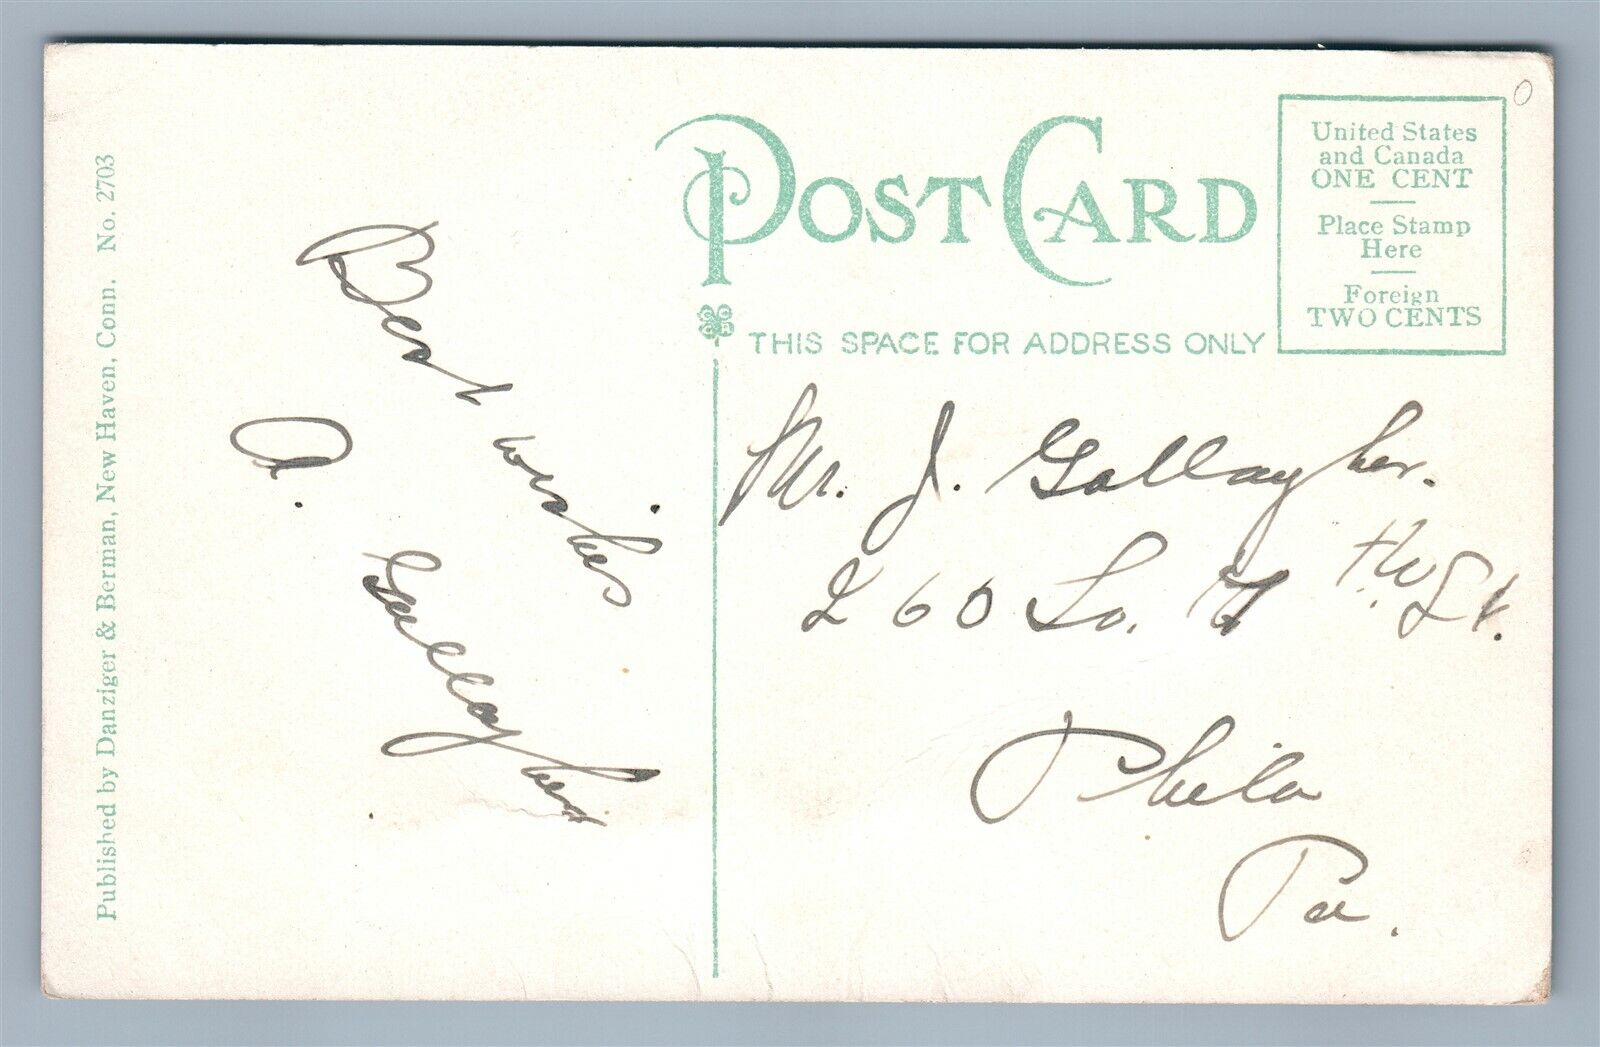 Published by Danziger & Berman, New Haven, Conn. No. 2703
Best wishes.
A. Gallagher
POST CARD
THIS SPACE FOR ADDRESS ONLY
United States
and Canada
ONE CENT
Place Stamp
Here
Foreign
TWO CENTS
Mr. J. Gallagher.
260 So. St.
Phila
Pa.